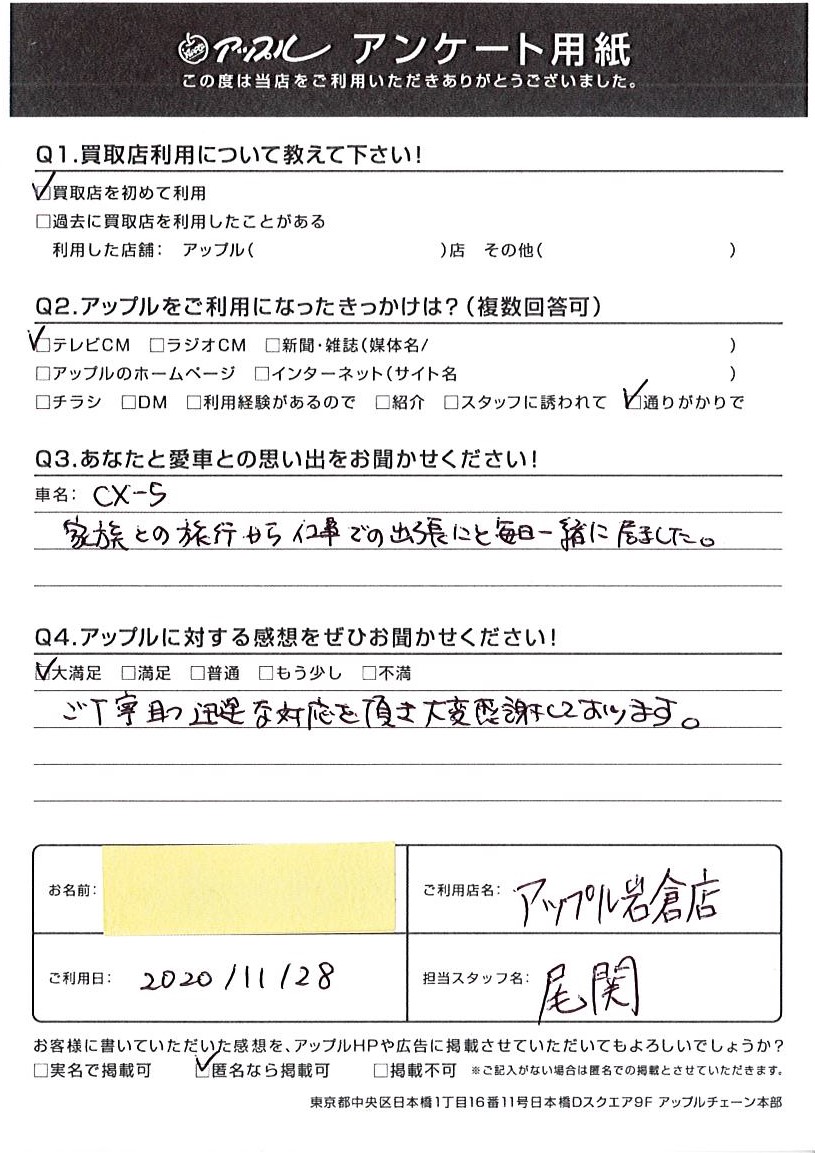 アップル アンケート用紙
この度は当店をご利用いただきありがとうございました。
Q1.買取店利用について教えて下さい!
☑買取店を初めて利用
□過去に買取店を利用したことがある
利用した店舗: アップル( )店 その他( )
Q2.アップルをご利用になったきっかけは?(複数回答可)
☑テレビCM □ラジオCM □新聞・雑誌(媒体名/ )
□アップルのホームページ □インターネット(サイト名 )
□チラシ □DM □利用経験があるので □紹介 □スタッフに誘われて ☑通りがかりで
Q3.あなたと愛車との思い出をお聞かせください!
車名: CX-5
家族との旅行から仕事での出張にと毎日一緒に居ました。
Q4.アップルに対する感想をぜひお聞かせください!
☑大満足 □満足 □普通 □もう少し □不満
ご丁寧且つ迅速な対応を頂き大変感謝しております。
お名前: ご利用店名: アップル岩倉店
ご利用日: 2020/11/28 担当スタッフ名: 尾関
お客様に書いていただいた感想を、アップルHPや広告に掲載させていただいてもよろしいでしょうか?
□実名で掲載可 ☑匿名なら掲載可 □掲載不可 ※ご記入がない場合は匿名での掲載とさせていただきます。
東京都中央区日本橋1丁目16番11号日本橋Dスクエア9F アップルチェーン本部